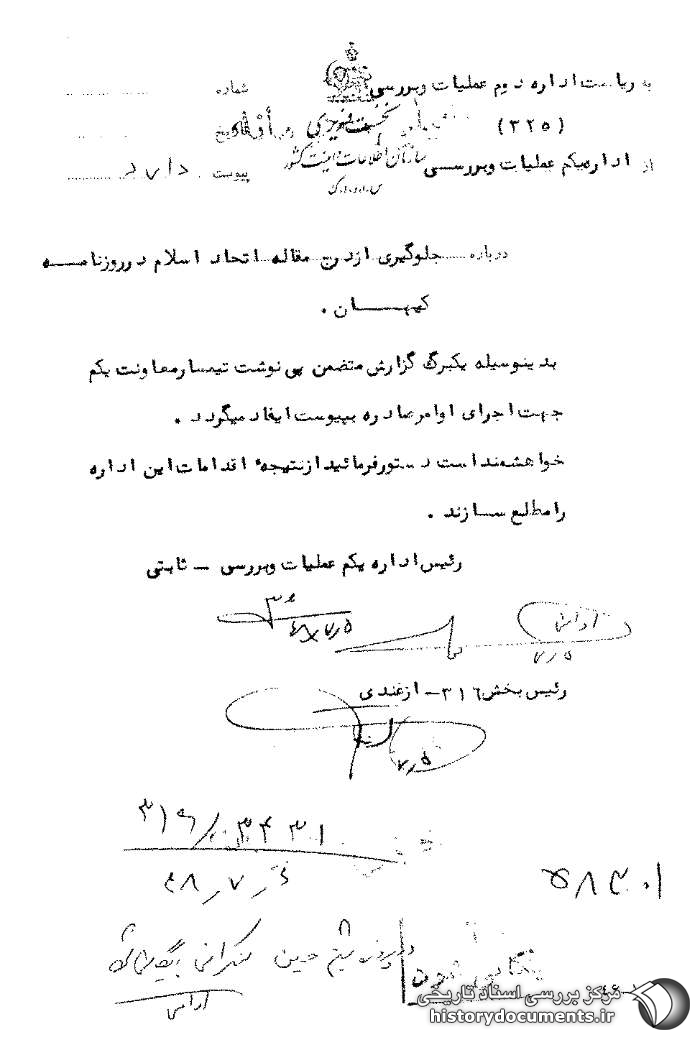 به ریاست اداره دوم عملیات وبررسی شماره
(۳۲۵) نخست وزیری تاریخ
سازمان اطلاعات و امنیت کشور
از اداره یکم عملیات وبررسی پیوست دارد
س.ا.و.ا.ک
درباره جلوگیری ازدرج مقاله اتحاد اسلام درروزنامه
کیهان .
بدینوسیله یکبرگ گزارش متضمن پی نوشت تیمسارمعاونت یکم
جهت اجرای اوامرصادره بپیوست ایفاد میگردد .
خواهشمند است دستورفرمائید ازنتیجه اقدامات این اداره
را مطلع سازند .
رئیس اداره یکم عملیات وبررسی - ثابتی
۴۸/۷/۵
۷/۵
رئیس بخش ۳۱۶ - ازغندی
۷/۵
۳۱۶/۳۴۳۱
۴۸/۷/۶
شیخ حسین لنکرانی بایگانی
مرکز بررسی اسناد تاریخی
historydocuments.ir